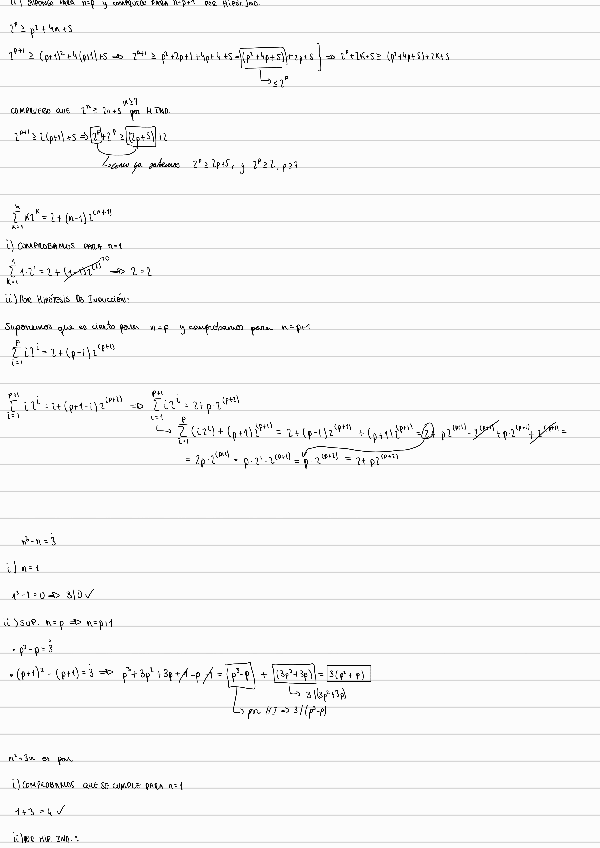 ii) SUPONGO PARA n=p y COMPRUEBO PARA n=p+1 POR HIP. IND.
2^p ≥ p²+4n+5
2^(p+1) ≥ (p+1)²+4(p+1)+5 ⇒ 2^(p+1) ≥ p²+2p+1+4p+4+5 = (p²+4p+5)+2p+5 ⇒ 2^p+2K+5 ≥ (p²+4p+5)+2K+5
↳ ≤ 2^p
COMPRUEBO QUE 2^n ≥ 2n+5 n≥7 por H. IND.
2^(p+1) ≥ 2(p+1)+5 ⇒ 2^p+2^p ≥ (2p+5)+2
↳ como ya sabemos 2^p ≥ 2p+5, y 2^p ≥ 2, p≥7
∑ K2^K = 2+(n-1)2^(n+1)
i) COMPROBAMOS PARA n=1
∑ 1·2^1 = 2+(1-1)2^(2) 0 ⇒ 2=2
ii) POR HIPÓTESIS DE INDUCCIÓN:
Suponemos que es cierto para n=p y comprobamos para n=p+1
∑ i2^i = 2+(p-1)2^(p+1)
∑ i2^i = 2+(p+1-1)2^(p+2) ⇒ ∑ i2^i = 2+p2^(p+2)
↳ ∑ (i2^i)+(p+1)2^(p+1) = 2+(p-1)2^(p+1)+(p+1)2^(p+1) = 2+p2^(p+1)-2^(p+1)+p·2^(p+1)+2^(p+1) =
= 2p·2^(p+1) = p·2^1·2^(p+1) = p·2^(p+2) = 2+p2^(p+2)
n³-n = 3̇
i) n=1
1³-1=0 ⇒ 3|0 ✓
ii) SUP. n=p ⇒ n=p+1
• p³-p = 3̇
• (p+1)³-(p+1) = 3̇ ⇒ p³+3p²+3p+1-p-1 = (p³-p) + (3p²+3p) = 3(p²+p)
↳ 3|(3p²+3p)
↳ por HI ⇒ 3|(p³-p)
n²+3n es par
i) COMPROBAMOS QUE SE CUMPLE PARA n=1
1+3=4 ✓
ii) POR HIP. IND.: